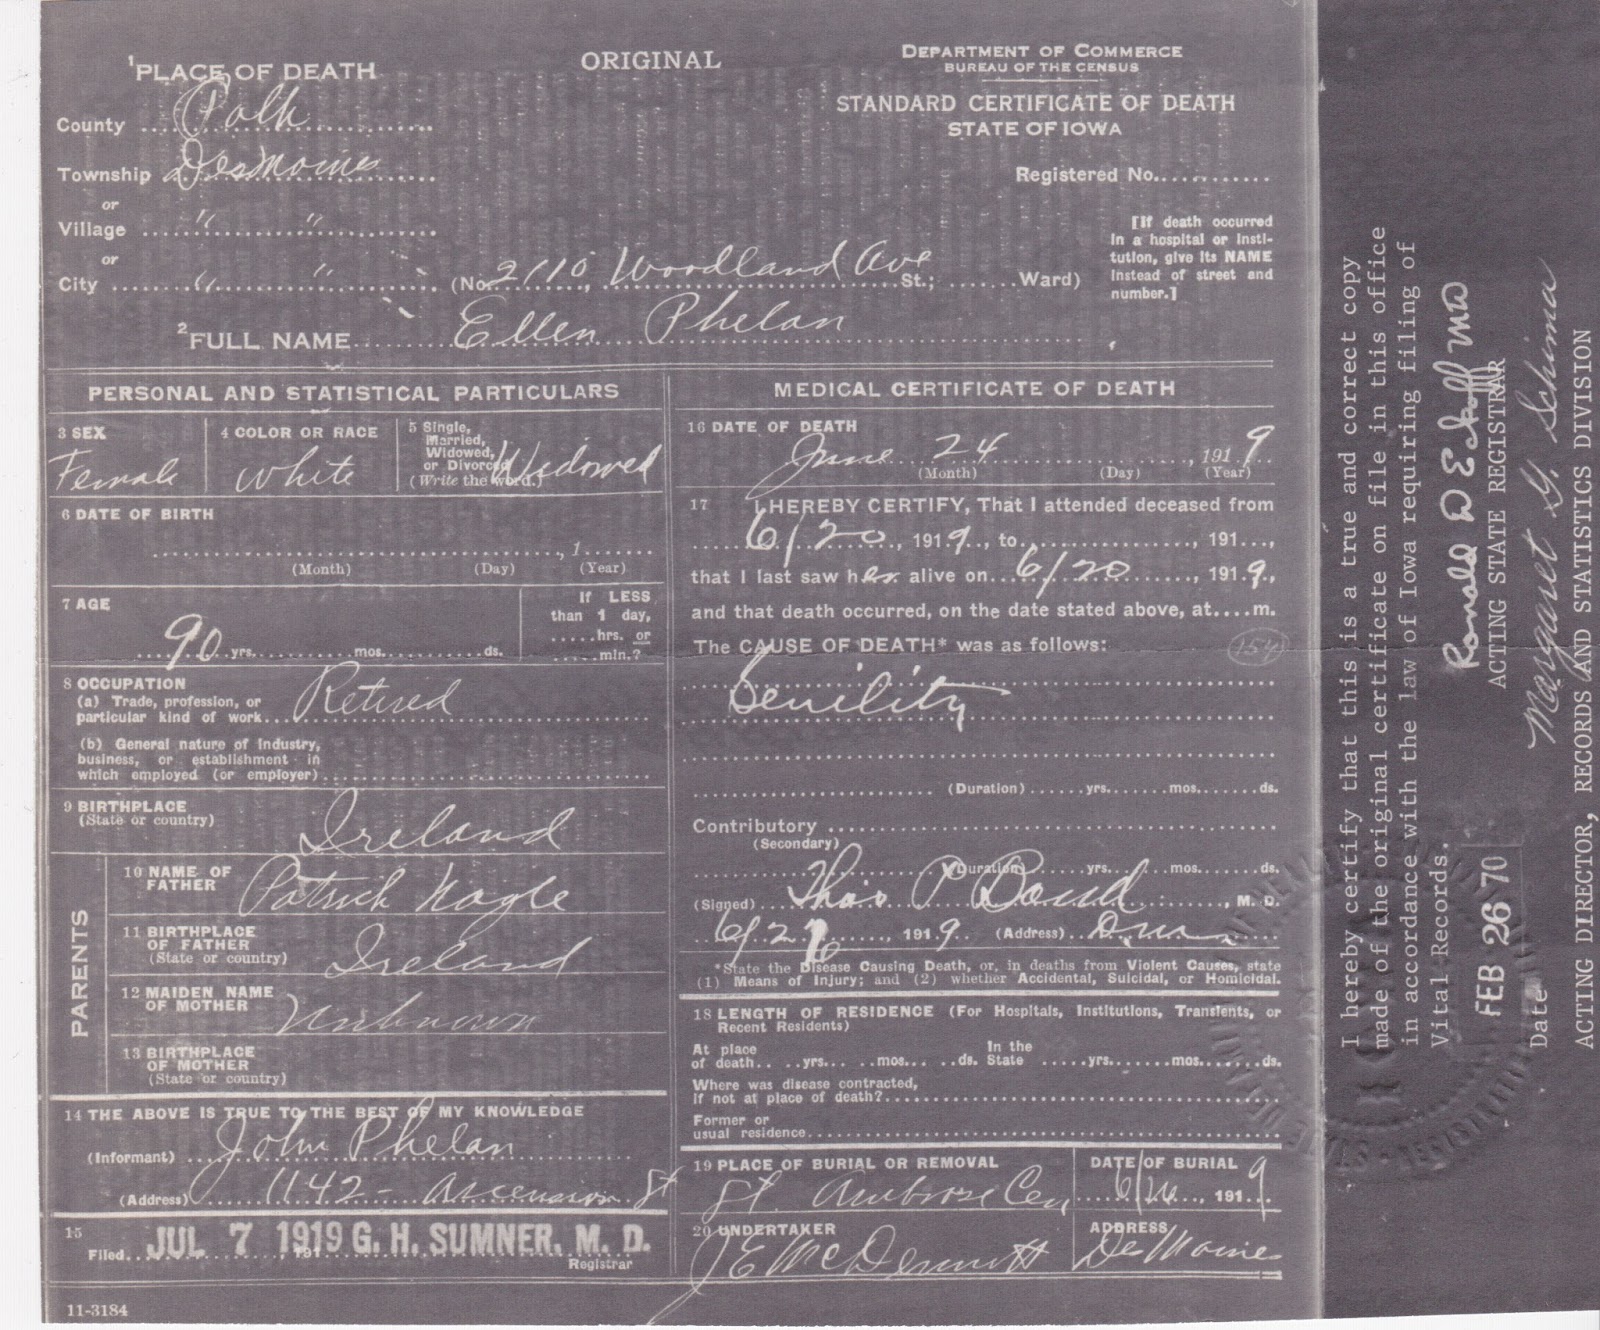 ORIGINAL
DEPARTMENT OF COMMERCE
BUREAU OF THE CENSUS
STANDARD CERTIFICATE OF DEATH
STATE OF IOWA
1 PLACE OF DEATH
County Polk
Township Des Moines
or
Village " "
or
City " " (No. 2110 Woodland Ave St.; Ward)
Registered No.
[If death occurred
in a hospital or insti-
tution, give its NAME
instead of street and
number.]
2 FULL NAME Ellen Phelan
PERSONAL AND STATISTICAL PARTICULARS
3 SEX
Female
4 COLOR OR RACE
White
5 Single,
Married,
Widowed,
or Divorced
(Write the word.) Widowed
6 DATE OF BIRTH
, 1
(Month) (Day) (Year)
7 AGE
90 yrs. mos. ds.
If LESS
than 1 day,
hrs. or
min.?
8 OCCUPATION
(a) Trade, profession, or
particular kind of work Retired
(b) General nature of industry,
business, or establishment in
which employed (or employer)
9 BIRTHPLACE
(State or country) Ireland
PARENTS
10 NAME OF
FATHER Patrick Nagle
11 BIRTHPLACE
OF FATHER
(State or country) Ireland
12 MAIDEN NAME
OF MOTHER Unknown
13 BIRTHPLACE
OF MOTHER
(State or country)
14 THE ABOVE IS TRUE TO THE BEST OF MY KNOWLEDGE
(Informant) John Phelan
(Address) 1142 - Ascension St
15
Filed JUL 7 1919 G. H. SUMNER, M. D.
Registrar
11-3184
MEDICAL CERTIFICATE OF DEATH
16 DATE OF DEATH
June 24, 1919
(Month) (Day) (Year)
17 I HEREBY CERTIFY, That I attended deceased from
6/20, 1919, to , 191 ,
that I last saw her alive on 6/20, 1919,
and that death occurred, on the date stated above, at m.
The CAUSE OF DEATH* was as follows:
154
Senility
(Duration) yrs. mos. ds.
Contributory
(Secondary)
(Duration) yrs. mos. ds.
(Signed) Thos P Bond, M. D.
6/26, 1919 (Address)
*State the Disease Causing Death, or, in deaths from Violent Causes, state
(1) Means of Injury; and (2) whether Accidental, Suicidal, or Homicidal.
18 LENGTH OF RESIDENCE (For Hospitals, Institutions, Transients, or
Recent Residents)
At place In the
of death yrs. mos. ds. State yrs. mos. ds.
Where was disease contracted,
if not at place of death?
Former or
usual residence
19 PLACE OF BURIAL OR REMOVAL
St. Ambrose Cem
DATE OF BURIAL
6/26, 1919
20 UNDERTAKER
J E McDermott
ADDRESS
Des Moines
I hereby certify that this is a true and correct copy
made of the original certificate on file in this office
in accordance with the law of Iowa requiring filing of
Vital Records.
Ronald D Eckoff MD
ACTING STATE REGISTRAR
FEB 26 70
Margaret G. Schima
Date
ACTING DIRECTOR, RECORDS AND STATISTICS DIVISION